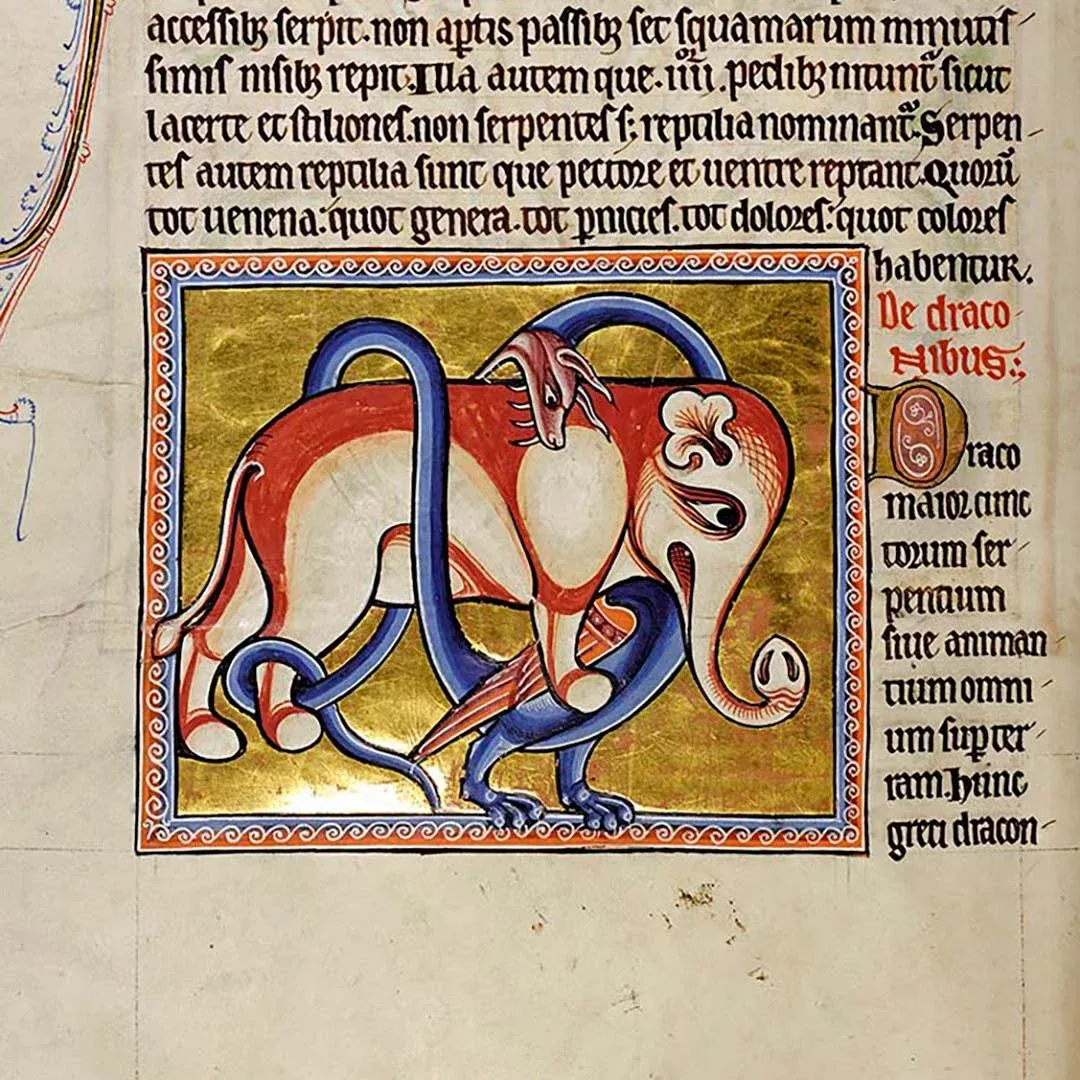 accessibꝫ serpit. non aꝑtis passibꝫ set squamarum minutis
simis nisibꝫ repit. Illa autem que .iiiior. pedibꝫ nitunt᷑ sicut
lacerte et stiliones. non serpentes s; reptilia nominant᷑. Serpen
tes autem reptilia sunt que pectore et uentre reptant. Quorū
tot uenena: quot genera. tot ꝑnicies. tot dolores: quot colores
habentur.
De draco
nibus:;
Draco
maior cunc
torum ser
pentium
siue animan
tium omni
um suꝑ ter
ram. Hunc
greci dracon